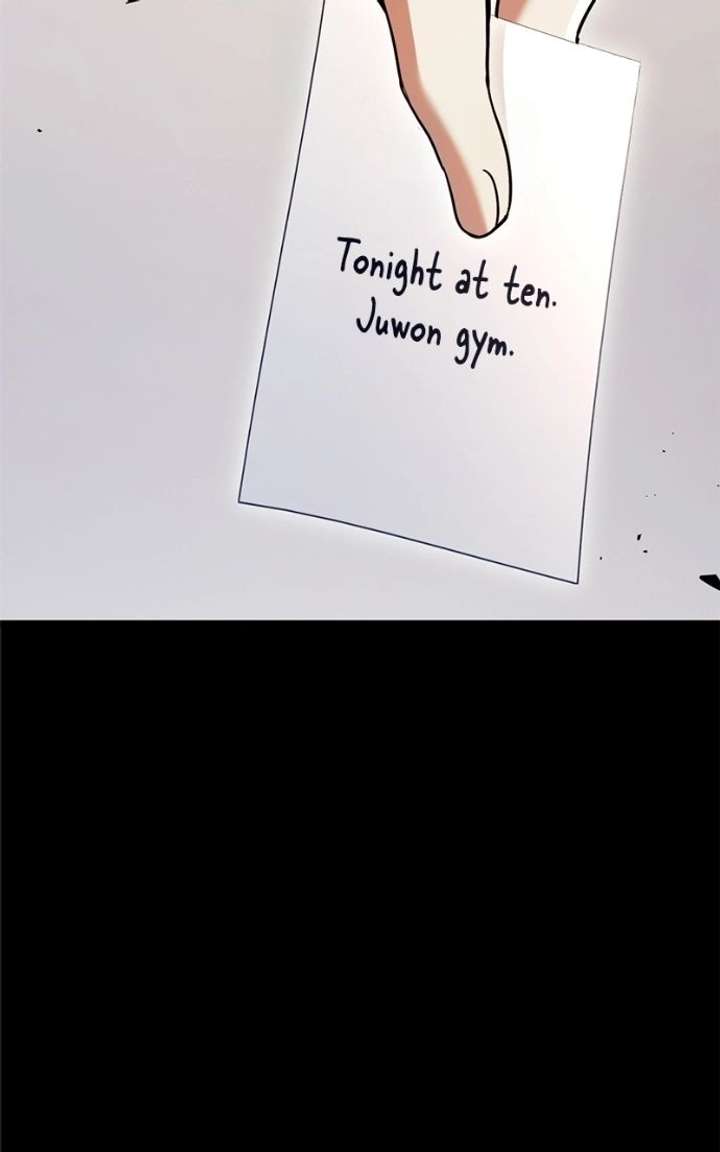 Tonight at ten.
Juwon gym.